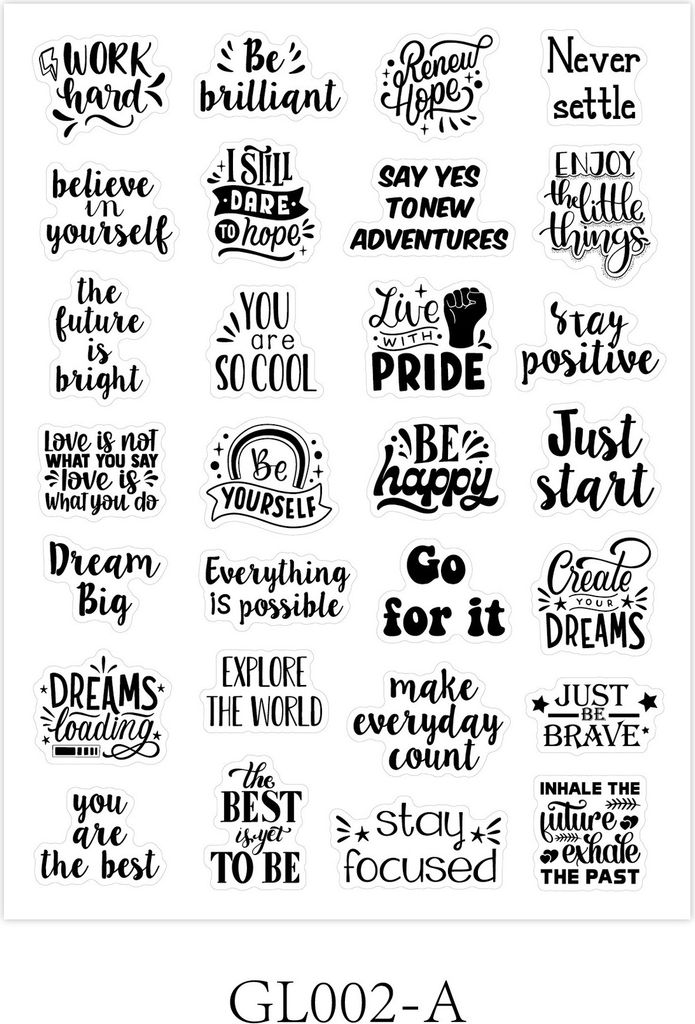 WORK
hard
Be
brilliant
Renew
Hope
Never
settle
believe
in
yourself
I STILL
DARE
TO hope
SAY YES
TONEW
ADVENTURES
ENJOY
the little
things
the
future
is
bright
YOU
are
SO COOL
Live
WITH
PRIDE
stay
positive
Love is not
WHAT YOU SAY
love is
what you do
Be
YOURSELF
BE
happy
Just
start
Dream
Big
Everything
is possible
Go
for it
Create
YOUR
DREAMS
DREAMS
loading
EXPLORE
THE WORLD
make
everyday
count
JUST
BE
BRAVE
you
are
the best
the
BEST
is yet
TO BE
stay
focused
INHALE THE
future
exhale
THE PAST
GL002-A